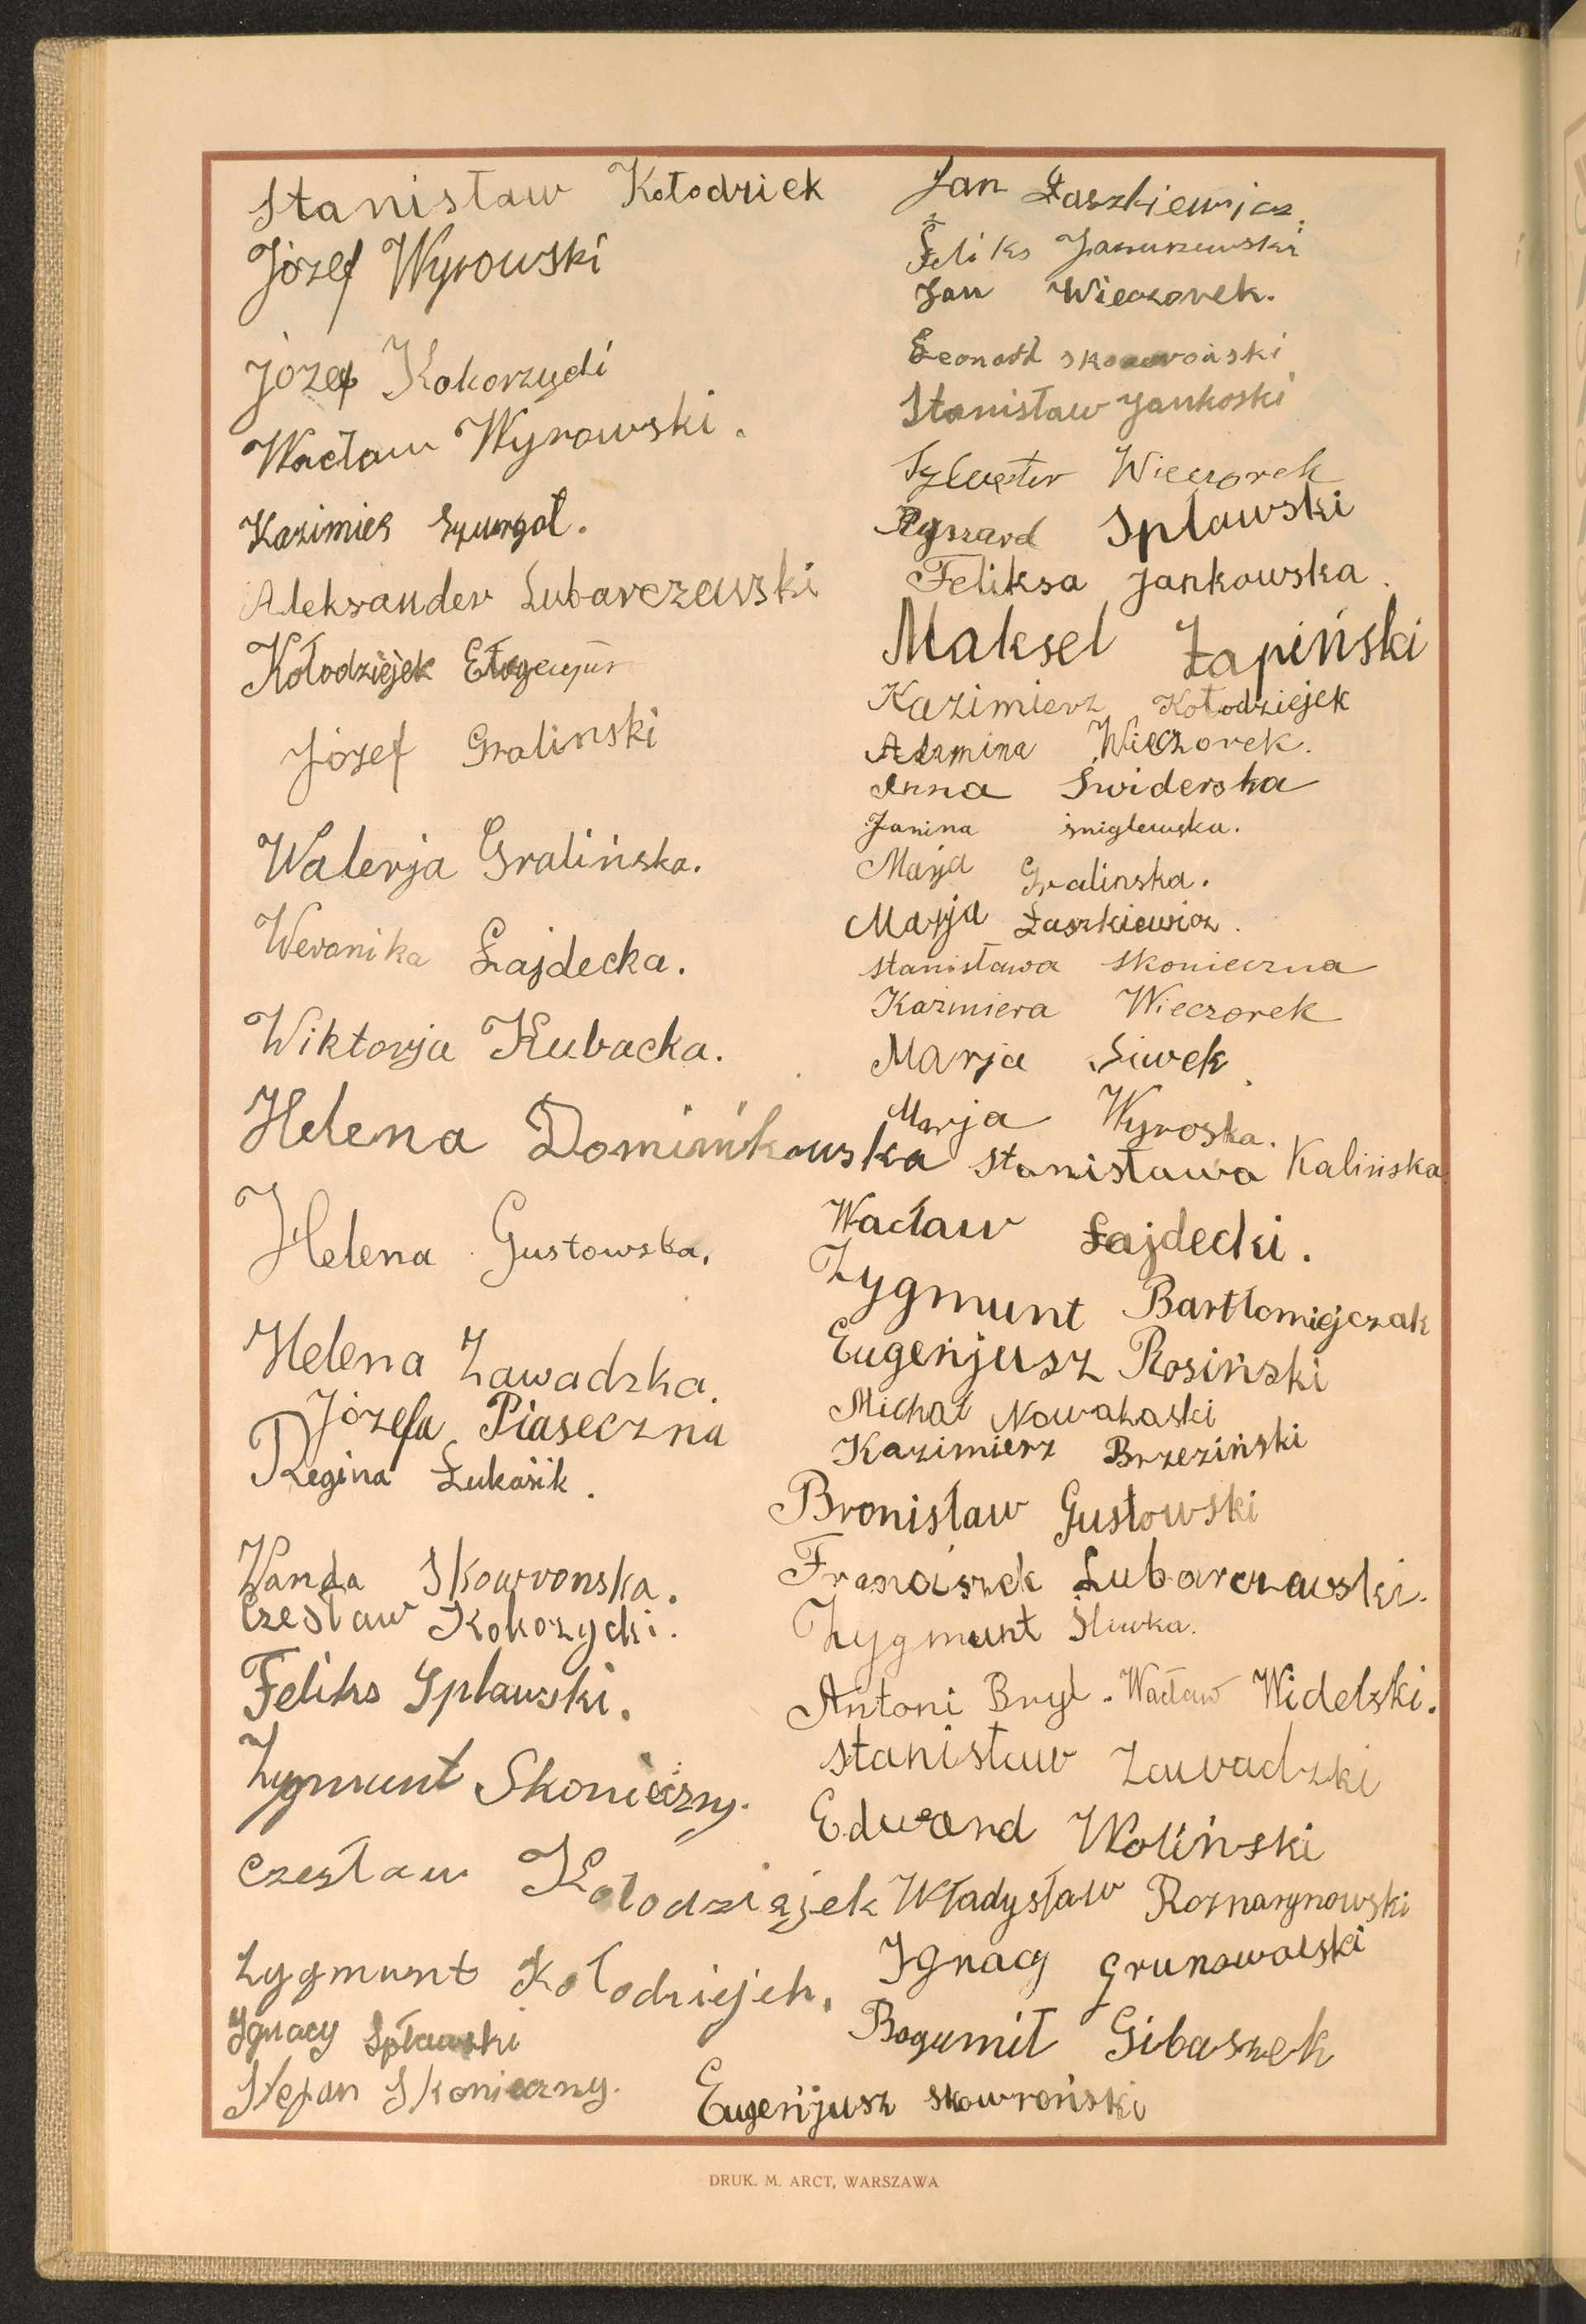 Stanisław Kołodziek
Józef Wyrowski
Józef Kokorzycki
Wacław Wyrowski.
Kazimies Szurgot.
Aleksander Lubarczewski
Kołodziejek
Józef Gralinski
Walerja Gralińska.
Weronika Łajdecka.
Wiktorja Kubacka.
Helena Dominikowska
Helena Gustowska.
Helena Zawadzka.
Józefa Piaseczna
Regina Łukasik.
Wanda Skowronska.
Czesław Kokorzycki.
Feliks Spławski.
Zygmunt Skonieczny.
Czesław Kołodziejek
Zygmunt Kołodziejek.
Ignacy Spławski
Stefan Skonieczny.
Jan Łaszkiewicz.
Feliks
Jan Wieczorek.
Leonard Skowroński
Stanisław Jankoski
Sylwester Wieczorek
Ryszard Spławski
Feliksa Jankowska.
Maksel Łapiński
Kazimierz Kołodziejek
Wieczorek.
Anna Świderska
Janina śniglewska.
Marja Gralinska.
Marja Łaszkiewicz.
Stanisława Skonieczna
Kazimiera Wieczorek
Marja Siwek
Marja Wyroska.
Stanisława Kalińska
Wacław Łajdecki.
Zygmunt Bartłomiejczak
Eugenjusz Rosiński
Michał
Kazimierz Brzeziński
Bronisław Gustowski
Franciszek Lubarczawski.
Zygmunt Śliwka.
Antoni Bryl. Wacław Widelski.
Stanisław Zawadzki
Edward Woliński
Władysław Rozmarynowski
Ignacy Grunowalski
Bogumił Gibaszek
Eugenjusz Skowroński
DRUK. M. ARCT, WARSZAWA